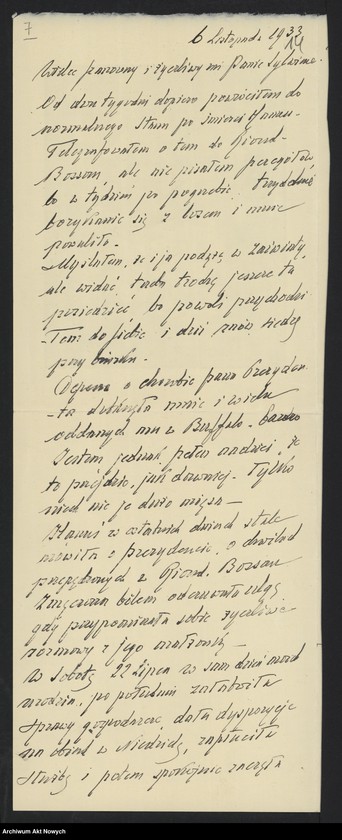 7
6 Listopada 1933
14
Wielce szanowny i życzliwy mi Panie Sylwinie!
Od dwu tygodni dopiero powróciłem do
normalnego stanu po śmierci Hanusi.
Telegrafowałem o tem do Riond-
Bosson, ale nie pisałem szczegółów
bo w tydzień po pogrzebie
borykanie się z losem i mnie
powaliło.
Myślałem, że i ja podążę w zaświaty,
ale widać, trzeba trochę jeszcze tu
posiedzieć, bo powoli przychodzę
-Tem do siebie i dziś znów siedzę
przy biurku.
Depesza o chorobie pana Prezyden-
-ta dotknęła mnie i wielu
oddanych mu w Buffalo.
Jestem jednak pełen nadziei, że
to przejdzie, jak dawniej. Tylko
niech nie je dużo mięsa -
Hanusia w ostatnich dniach stale
mówiła o prezydencie, o chwilach
spędzonych z Riond. Bosson
Zmęczona bólem odczuwała ulgę
gdy przypominała sobie życzliwe
rozmowy z jego małżonką -
W sobotę 22 Lipca w sam dzień mod
urodzin, po południu załatwiła
sprawy gospodarcze, dała dyspozycje
na obiad w Niedzielę, zapłaciła
służbę i potem spokojnie zaczęła
Archiwum Akt Nowych